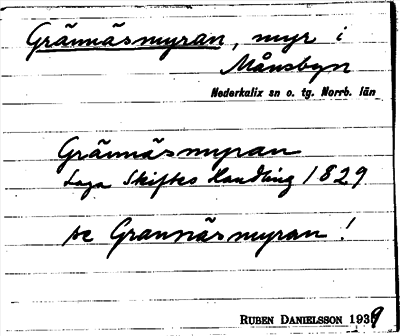 Grännäsmyran, myr i
Månsbyn
Nederkalix sn o. tg. Norrb. län
Grännäsmyran
Laga Skiftes Handling 1829
se Grannäsmyran!
RUBEN DANIELSSON 1939